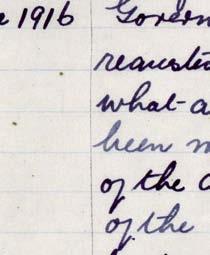 e 1916 Govern
requesti
what a
been m
of the a
of the